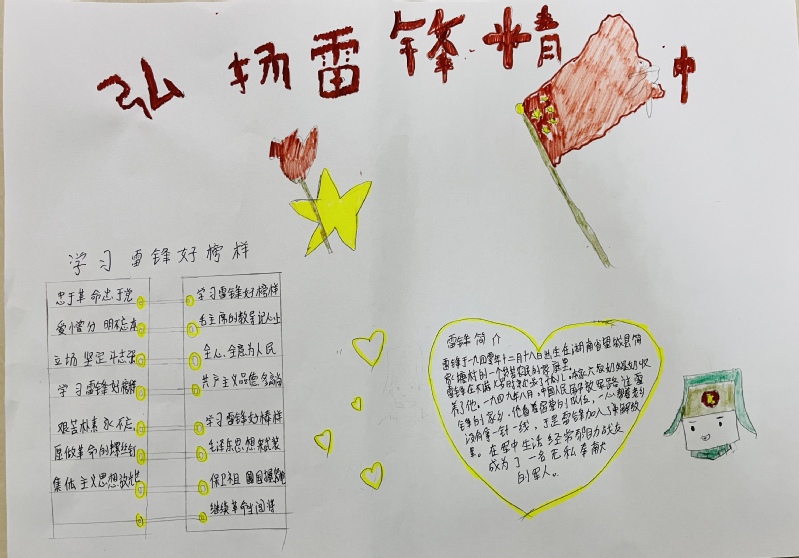 弘扬雷锋精神
学习雷锋好榜样
忠于革命忠于党
爱憎分明不忘本
立场坚定斗志强
学习雷锋好榜样
艰苦朴素永不忘
愿做革命的螺丝钉
集体主义思想放光芒
学习雷锋好榜样
毛主席的教导记心上
全心全意为人民
共产主义品德多高尚
学习雷锋好榜样
毛泽东思想来武装
保卫祖国握紧枪
继续革命当闯将
雷锋简介
雷锋于一九四零年十二月十八日出生在湖南省望城县简
家塘村的一个贫苦农民的家庭里。
雷锋在不满七岁时就成了孤儿。
养了他。一九四九年八月,中国人民解放军路过雷
锋的家乡,
没有拿一针一线,于是雷锋加入了解放
军。在军中生活经常帮助战友
成为了一名无私奉献
的军人。